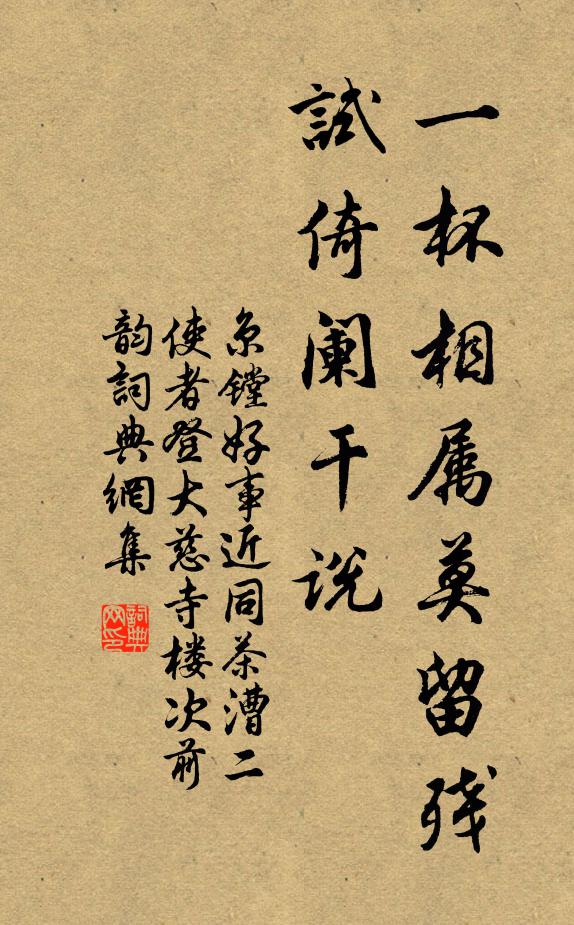 一杯相属莫留残
試倚阑干说
京镗好事近同茶漕二
使者登大慈寺楼次前
韵詞典網集
詞典
网印